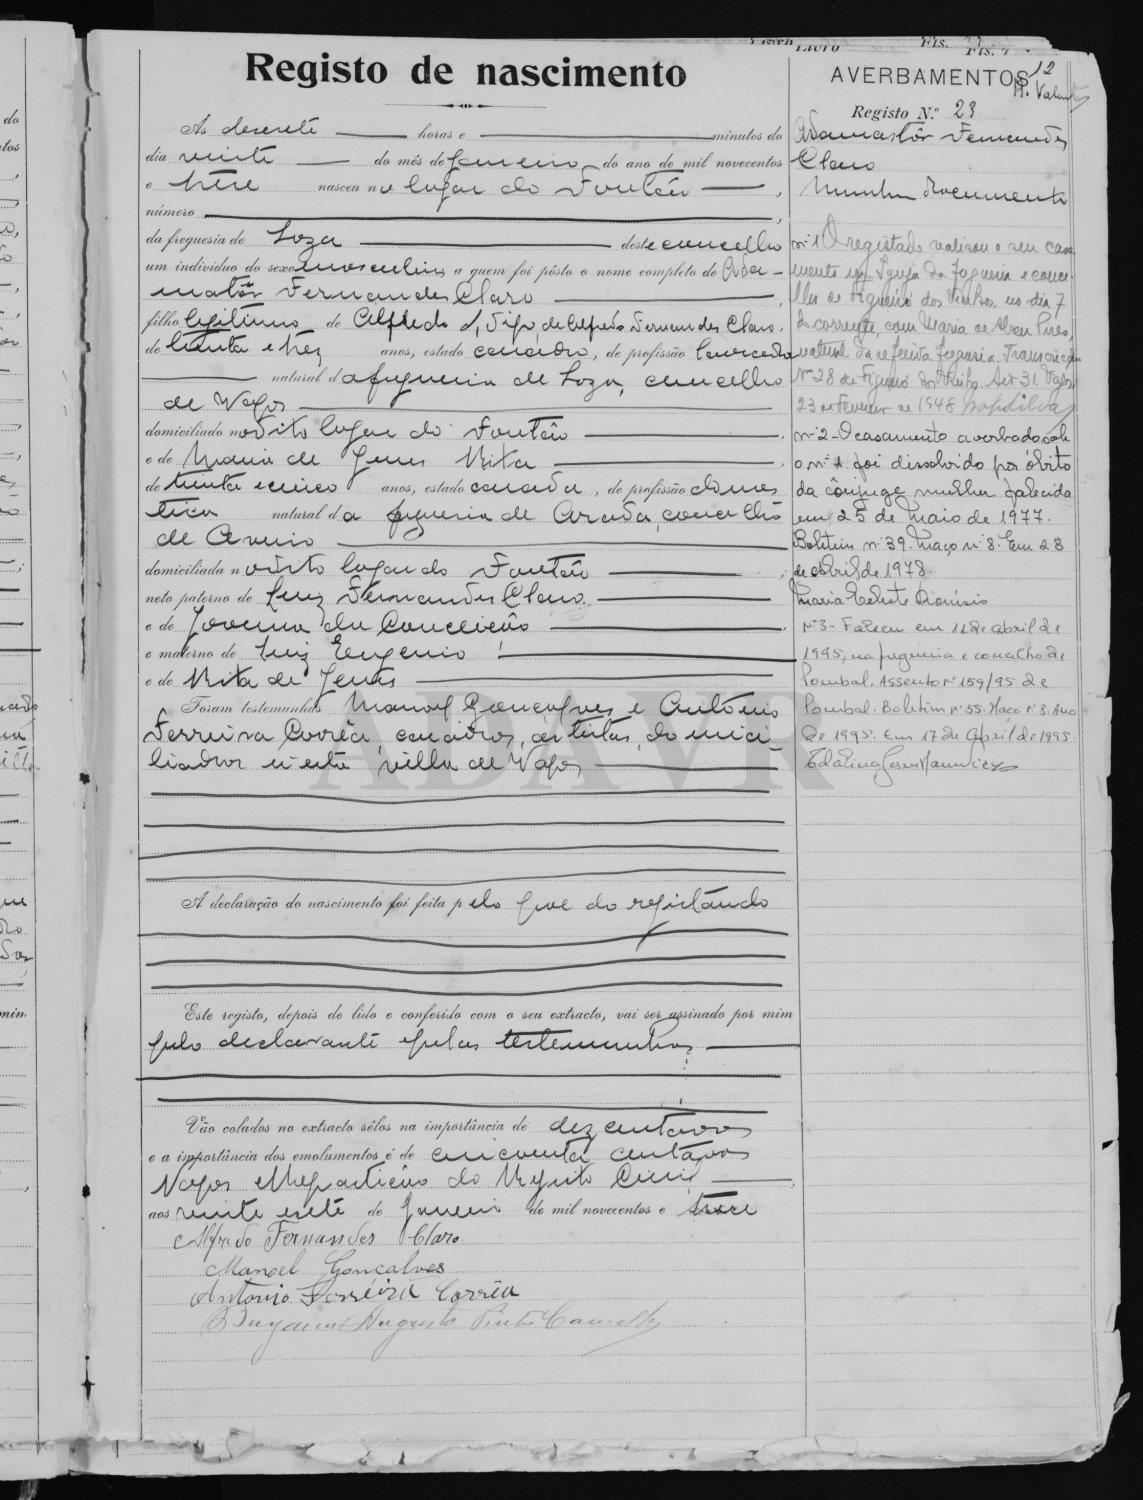 Livro Fls.
Livro Fls.
12
Registo de nascimento
Ás desesete horas e minutos do
dia vinte do mês de Janeiro do ano de mil novecentos
e treze nasceu no lugar do Fontão,
número
da freguesia de Soza deste concelho
um indivíduo do sexo masculino a quem foi pôsto o nome completo de Ada-
mastôr Fernandes Claro,
filho legitimo de Alfredo digo de Alfredo Fernandes Claro,
de trinta e trez anos, estado casádo, de profissão lavrador
natural da freguesia de Soza, concelho
de Vagos
domiciliado no dito lugar do Fontão,
e de Maria de Jesus Rita,
de trinta e cinco anos, estado casada, de profissão domes
tica natural da freguesia de Arada, concelho
de Aveiro
domiciliada no dito lugar do Fontão;
neto paterno de Luiz Fernandes Claro
e de Joanna da Conceição
e materno de Luiz Eugenio
e de Rita de Jesus
Foram testemunhas Manoel Gonçalves e António
Ferreira Corrêa, casádos, artistas, domici-
liados n'esta villa de Vagos
A declaração do nascimento foi feita pelo pae do registándo
Este registo, depois de lido e conferido com o seu extracto, vai ser assinado por mim
pelo declarante e pelas testemunhas
Vão colados no extracto sêlos na importância de dez centávos
e a importância dos emolumentos é de cincoenta centávos
Vagos e Repartição do Registo Civil,
aos vinte e sete de Janeiro de mil novecentos e treze
Alfredo Fernandes Claro
Manoel Gonçalves
Antonio Ferreira Corrêa
Augusto Pinto
AVERBAMENTOS
Registo N.º 23
Adamastôr Fernandes
Claro
Nenhum documento
nº 1 O registado realizou o seu casa
mento na Igreja da freguesia e conce-
lho de Figueiró dos Vinhos, no dia 7
do corrente, com Maria de Pires,
natural da referida freguesia. Transcrição
Nº 28 de Figueiró dos Vinhos. Art 31. Vagos
23 de Fevereiro de 1948
nº 2 - O casamento averbado sob
o nº 1 foi dissolvido por óbito
da cônjuge mulher falecida
em 25 de Maio de 1977.
Boletim nº 39. Maço nº 8. Em 28
de Abril de 1978.
Maria Celeste Dionísio
Nº 3 - Faleceu em 11 de abril de
1995, na freguesia e concelho de
Pombal. Assento nº 159/95 de
Pombal. Boletim nº 55. Maço nº 8. Ano
de 1995. Em 17 de Abril de 1995.
ADAVR